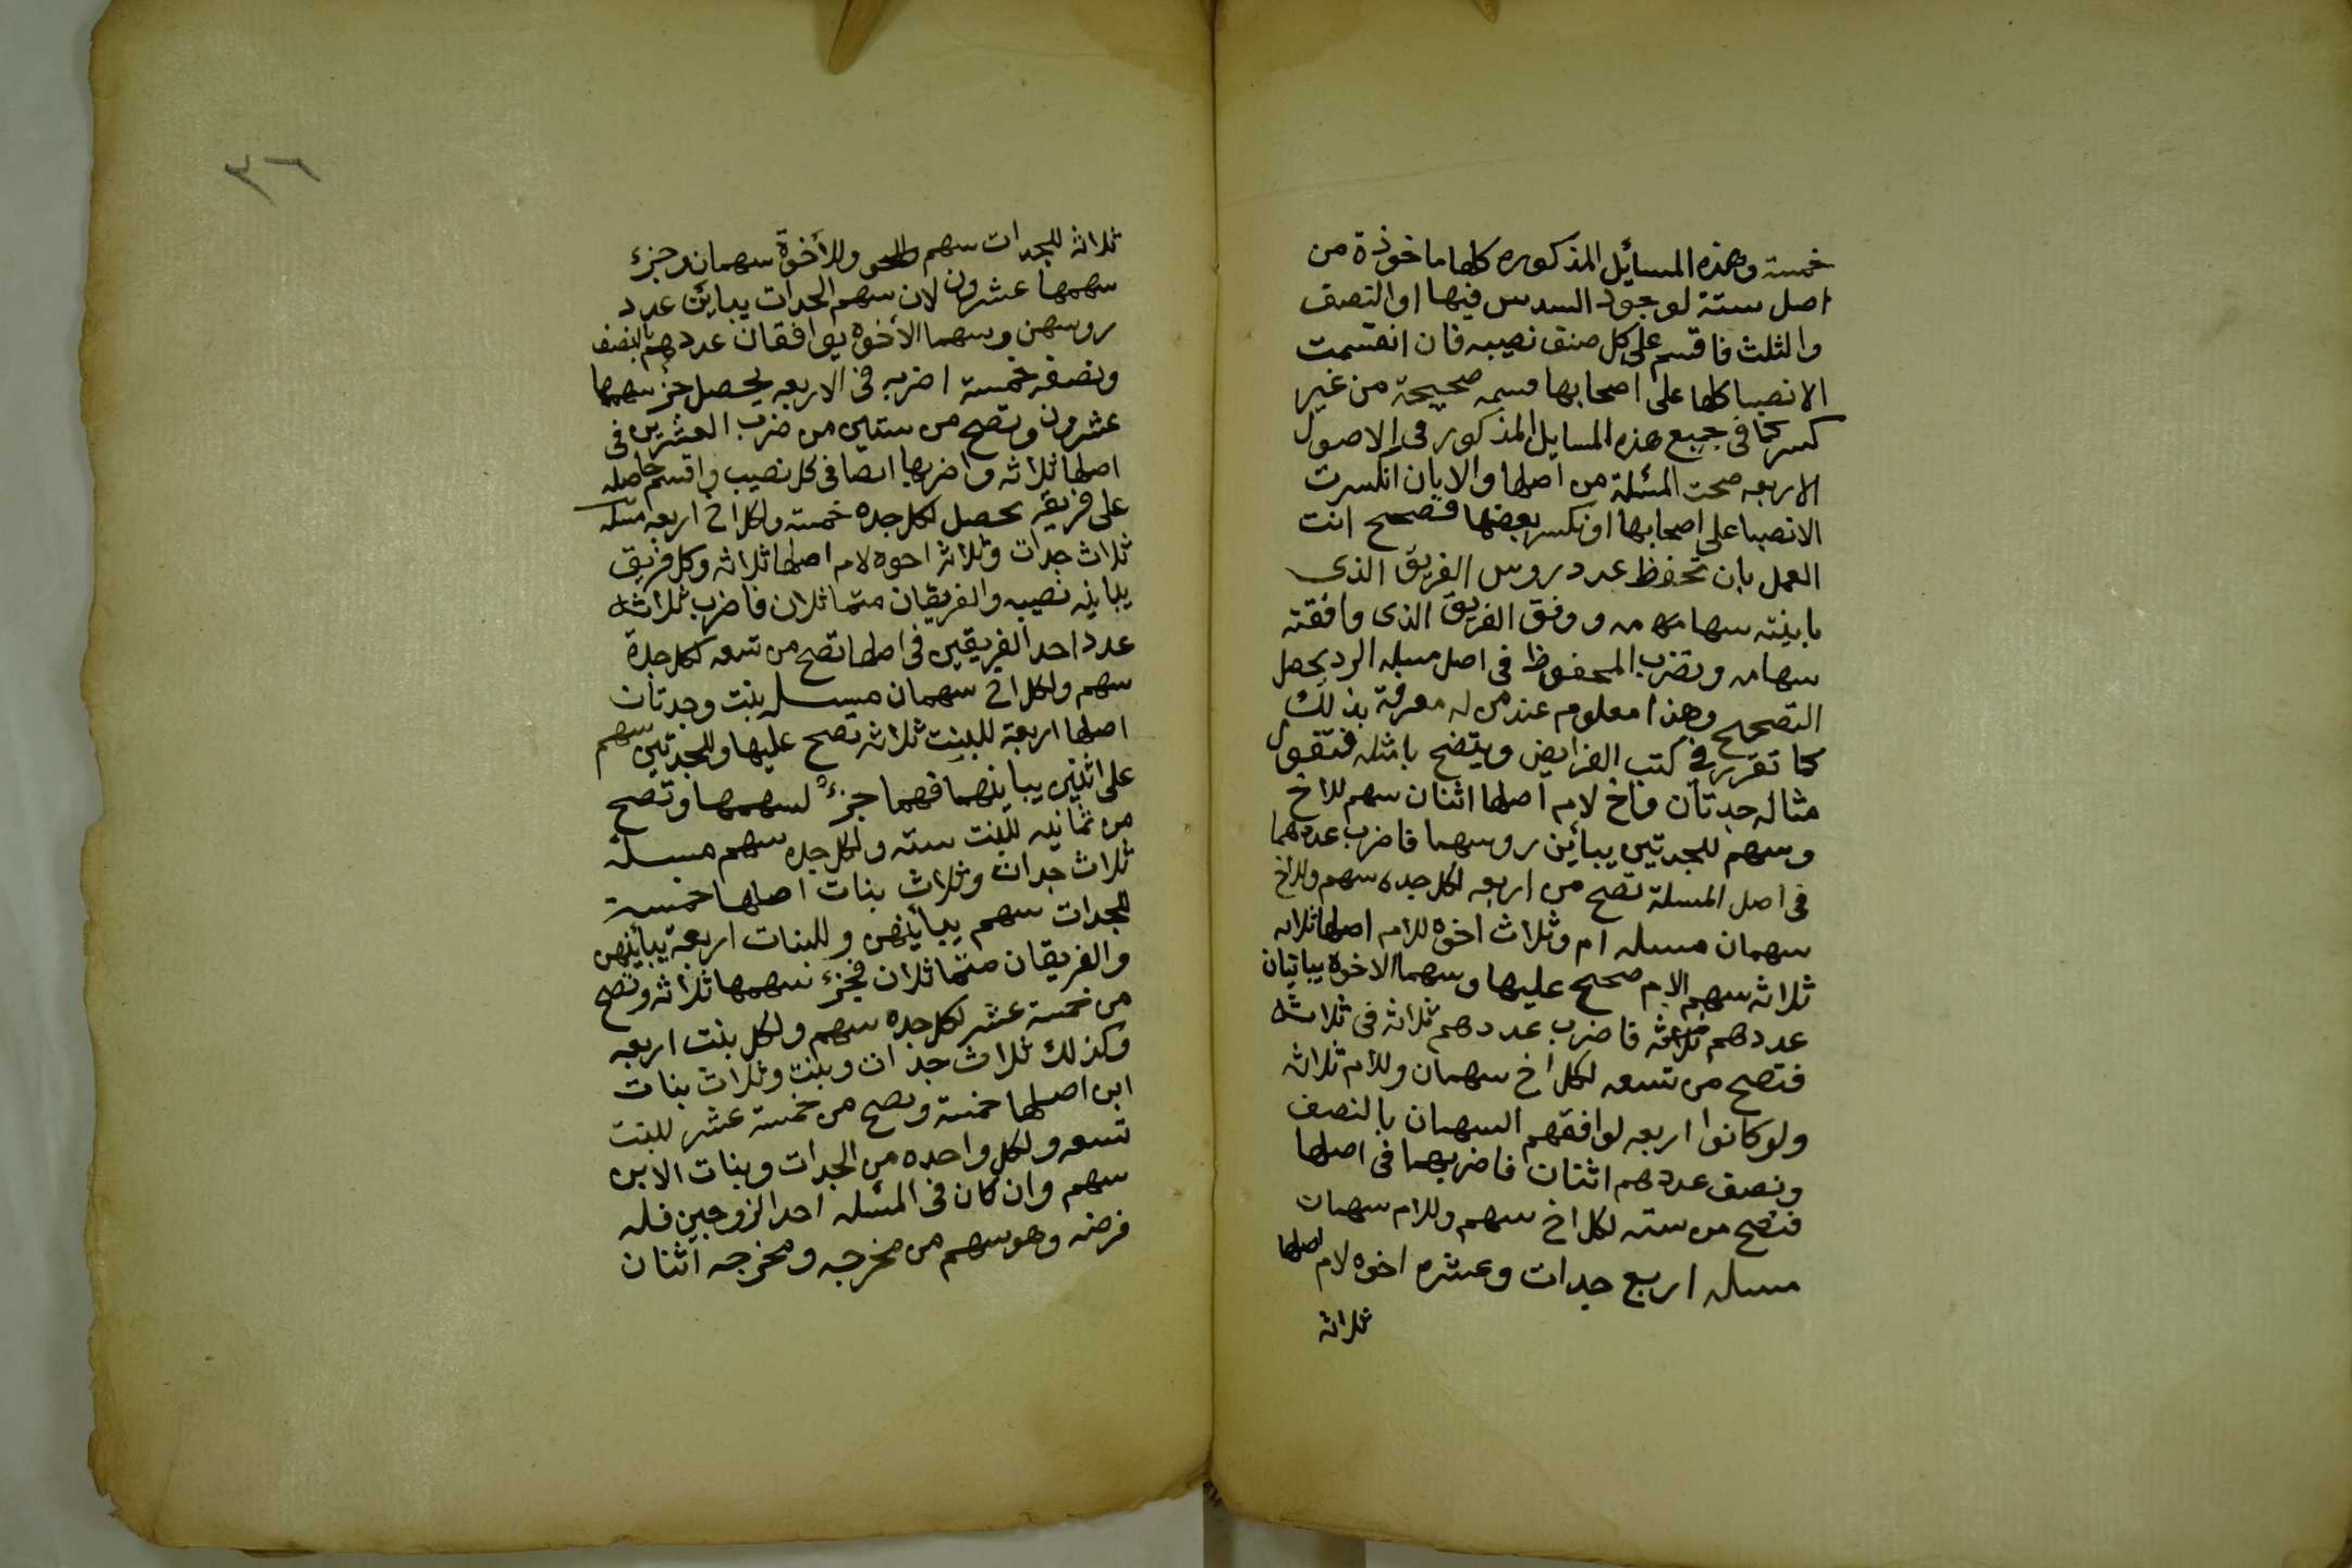 خمسة وهذه المسائل المذكوره كلها ماخوذة من
اصل ستة لوجود السدس فيها او النصف
والثلث فاقسم على كل صنف نصيبه فان انقسمت
الانصبا كلها على اصحابها قسمه صحيحة من غير
كسر كما فى جميع هذه المسايل المذكور فى الاصول
الاربعه صحت المسئلة من اصلها والا بان انكسرت
الانصبا على اصحابها او نكسر بعضها فصحح انت
العمل بان تحفظ عدد روس الفريق الذى
باينته سهامه ووفق الفريق الذى وافقته
سهامه وتضرب المحفوظ فى اصل مسله الرد يحصل
التصحيح وهذا معلوم عند من له معرفة بذلك
كما تقرر فى كتب الفرايض ويتضح بامثله فتقول
مثاله جدتان واخ لام اصلها اثنان سهم للاخ
وسهم للجدتين يباين روسهما فاضرب عددهما
فى اصل المسلة تصح من اربعه لكل جده سهم وللاخ
سهمان مسله ام وثلاث اخوه للام اصلها ثلاثه
ثلاثه سهم الام صحيح عليها وسهما الاخوة يباينان
عددهم ثلاثه فاضرب عددهم ثلاثه فى ثلاثه
فتصح من تسعه لكل اخ سهمان وللام ثلاثه
ولو كانوا اربعه لوافقهم السهمان بالنصف
ونصف عددهم اثنان فاضربهما فى اصلها
فتصح من سته لكل اخ سهم وللام سهمان
مسله اربع جدات وعشره اخوه لام اصلها
ثلاثه
٣٦
ثلاثه للجدات سهم وللأخوة سهمان جزء
سهمها عشرون لان سهم الجدات يباين عدد
روسهن وسهما الأخوه يوافقان عددهم بالنصف
ونصفه خمسة اضربه فى الاربعه يحصل جزء سهمها
عشرون وتصح من ستين من ضرب العشرين فى
اصلها ثلاثه واضربها ايضا فى كل نصيب واقسم حاصله
على فريقه يحصل لكل جده خمسه ولكل اخ اربعه مسله
ثلاث جدات وثلاثه اخوه لام اصلها ثلاثه وكل فريق
يباينه نصيبه والفريقان متماثلان فاضرب ثلاثه
عدد احد الفريقين فى اصلها تصح من تسعه لكل جدة
سهم ولكل اخ سهمان مسله بنت وجدتان
اصلها اربعة للبنت ثلاثه تصح عليها وللجدتين سهم
على اثنين يباينهما فهما جزء لسهمها وتصح
من ثمانيه للبنت سته ولكل جده سهم مسلة
ثلاث جدات وثلاث بنات اصلها خمسة
للجدات سهم يباينهن وللبنات اربعة يباينهن
والفريقان متماثلان فجزء سهمها ثلاثه وتصح
من خمسة عشر لكل جده سهم ولكل بنت اربعه
وكذلك ثلاث جدات وبنت وثلاث بنات
ابن اصلها خمسة وتصح من خمسة عشر للبنت
تسعه ولكل واحده من الجدات وبنات الابن
سهم وان كان فى المسئله احد الزوجين فله
فرضه وهو سهم من مخرجه ومخرجه اثنان